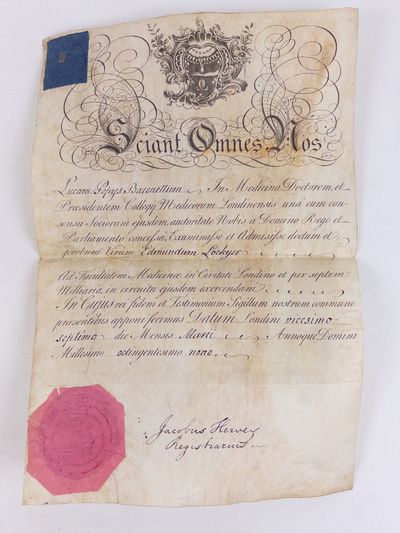 Sciant Omnes Nos
Lucam Pepys Baronettum In Medicina Doctorem et
Præsidentem Collegij Medicorum Londinensis una cum con-
sensu Sociorum ejusdem, auctoritate Nobis a Domino Rege et
Parliamento concessa, Examinasse et Admisisse doctum et
probum Virum Edmundum Lockyer
Ad Facultatem Medicinæ in Civitate Londino et per septem
Milliaria, in circuitu ejusdem exercendam
In Cujus rei fidem et Testimonium Sigillum nostrum commune
præsentibus apponi fecimus Datum Londini vicesimo
septimo die Mensis Martii Annoque Domini
Millesimo octingentesimo nono
Jacobus Hervey
Registrarius